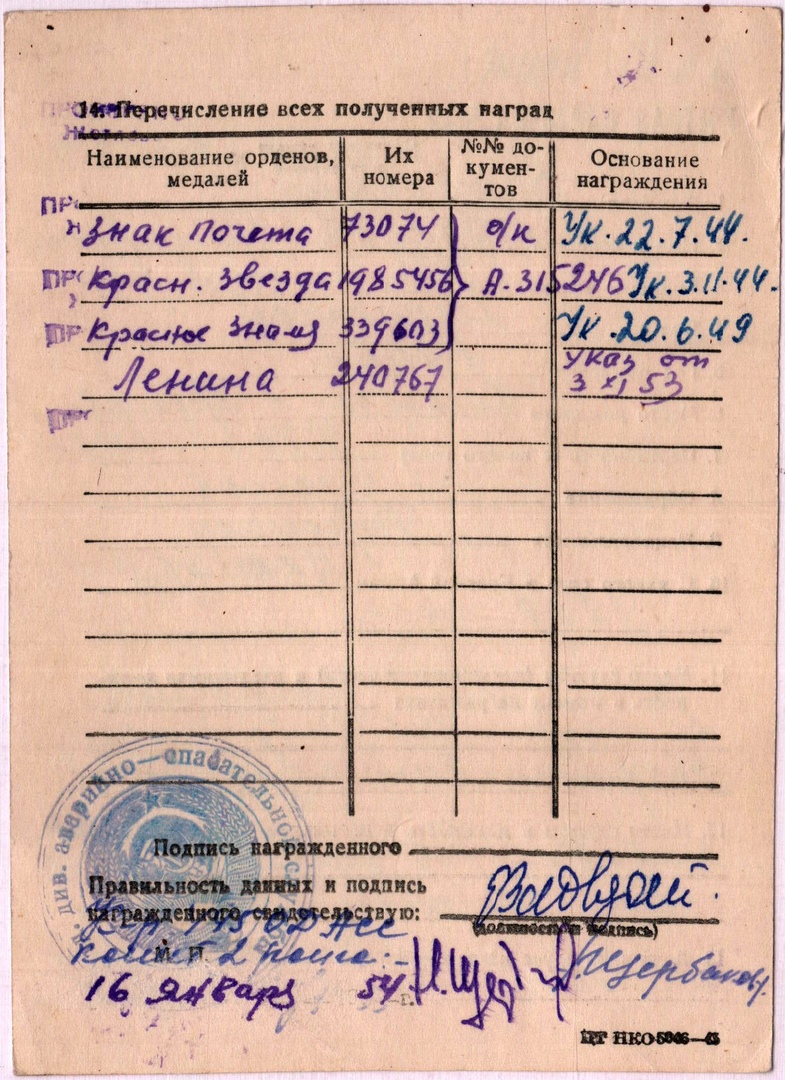 14. Перечисление всех полученных наград
Наименование орденов, медалей
Их номера
№№ документов
Основание награждения
Знак почета 73074 б/н Ук. 22.7.44.
Красн. звезда 1985456 А.315246 Ук. 3.11.44.
Красное Знамя 339603 Ук 20.6.49
Ленина 240767 Указ от
3 XI 53
див. аварийно—спасательной
Подпись награжденного
Правильность данных и подпись
награжденного свидетельствую:
(должность и подпись)
М. П.
16 января 54 г.
Щербаков
ЦТ НКО